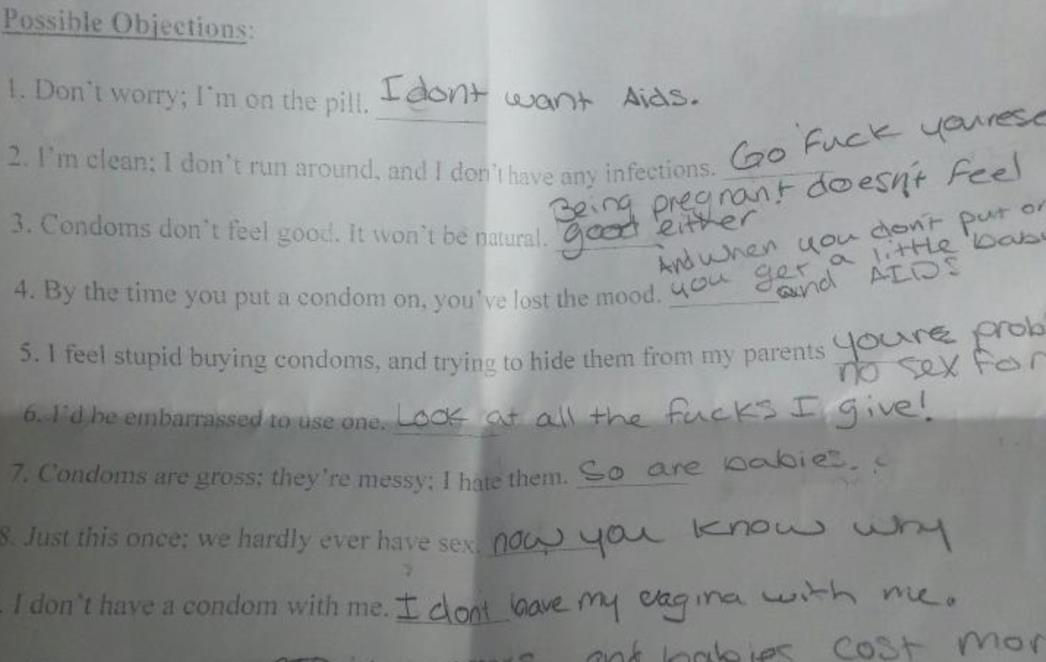 Possible Objections:
1. Don't worry; I'm on the pill. I dont want Aids.
2. I'm clean; I don't run around, and I don't have any infections. Go Fuck
3. Condoms don't feel good. It won't be natural. Being pregnant doesn't feel
good either
4. By the time you put a condom on, you've lost the mood. And when you don't put
you get a little
and AIDS
5. I feel stupid buying condoms, and trying to hide them from my parents youre
no sex for
6. I'd be embarrassed to use one. Look at all the fucks I give!
7. Condoms are gross; they're messy; I hate them. So are babies.
8. Just this once; we hardly ever have sex. now you know why
I don't have a condom with me. I dont have my vagina with me.
and babies cost